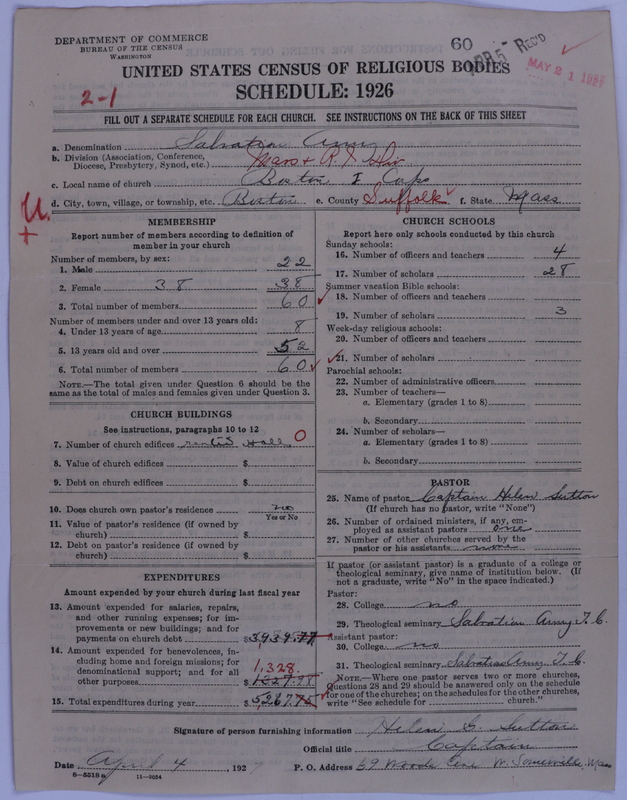 DEPARTMENT OF COMMERCE
BUREAU OF THE CENSUS
WASHINGTON
60
APR 5 REC'D
MAY 21 1927
UNITED STATES CENSUS OF RELIGIOUS BODIES
SCHEDULE: 1926
2-1
FILL OUT A SEPARATE SCHEDULE FOR EACH CHURCH. SEE INSTRUCTIONS ON THE BACK OF THIS SHEET
a. Denomination Salvation Army
b. Division (Association, Conference, Diocese, Presbytery, Synod, etc.) Mass & R I Div
c. Local name of church Boston I Corps
d. City, town, village, or township, etc. Boston e. County Suffolk f. State Mass
U.
+
MEMBERSHIP
Report number of members according to definition of
member in your church
Number of members, by sex:
1. Male 22
2. Female 38 38
3. Total number of members 60
Number of members under and over 13 years old:
4. Under 13 years of age 8
5. 13 years old and over 52
6. Total number of members 60
NOTE.—The total given under Question 6 should be the
same as the total of males and females given under Question 3.
CHURCH BUILDINGS
See instructions, paragraphs 10 to 12
7. Number of church edifices rented Hall 0
8. Value of church edifices $
9. Debt on church edifices $
10. Does church own pastor's residence no
Yes or No
11. Value of pastor's residence (if owned by
church) $
12. Debt on pastor's residence (if owned by
church) $
EXPENDITURES
Amount expended by your church during last fiscal year
13. Amount expended for salaries, repairs,
and other running expenses; for im-
provements or new buildings; and for
payments on church debt $3939.77
14. Amount expended for benevolences, in-
cluding home and foreign missions; for
denominational support; and for all 1,328.
other purposes $1327.98
15. Total expenditures during year $5267.75
CHURCH SCHOOLS
Report here only schools conducted by this church
Sunday schools:
16. Number of officers and teachers 4
17. Number of scholars 28
Summer vacation Bible schools:
18. Number of officers and teachers
19. Number of scholars 3
Week-day religious schools:
20. Number of officers and teachers
21. Number of scholars
Parochial schools:
22. Number of administrative officers
23. Number of teachers—
a. Elementary (grades 1 to 8)
b. Secondary
24. Number of scholars—
a. Elementary (grades 1 to 8)
b. Secondary
PASTOR
25. Name of pastor Captain Helen Sutton
(If church has no pastor, write "None")
26. Number of ordained ministers, if any, em-
ployed as assistant pastors one
27. Number of other churches served by the
pastor or his assistants none
If pastor (or assistant pastor) is a graduate of a college or
theological seminary, give name of institution below. (If
not a graduate, write "No" in the space indicated.)
Pastor:
28. College no
29. Theological seminary Salvation Army T. C.
Assistant pastor:
30. College no
31. Theological seminary Salvation Army T. C.
NOTE.—Where one pastor serves two or more churches,
Questions 28 and 29 should be answered only on the schedule
for one of the churches; on the schedules for the other churches,
write "See schedule for church."
Signature of person furnishing information Helen G. Sutton
Official title Captain
Date April 4, 1927 P. O. Address 69 Ave W. Somerville, Mass
8-5518a 11-9054